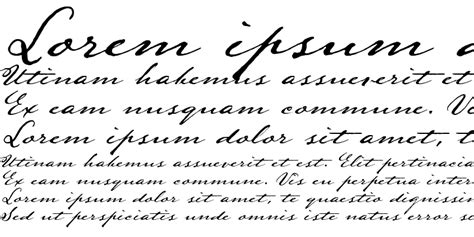 Lorem ipsum
Utinam habemus assueverit et
Ex eam nusquam commune. Vo
Lorem ipsum dolor sit amet, t
Utinam habemus assueverit et est. Elit pertinacia
Ex eam nusquam commune. Vis eu perpetua inter
Lorem ipsum dolor sit amet, te quaestio dignissin
Sed ut perspiciatis unde omnis iste natus error s